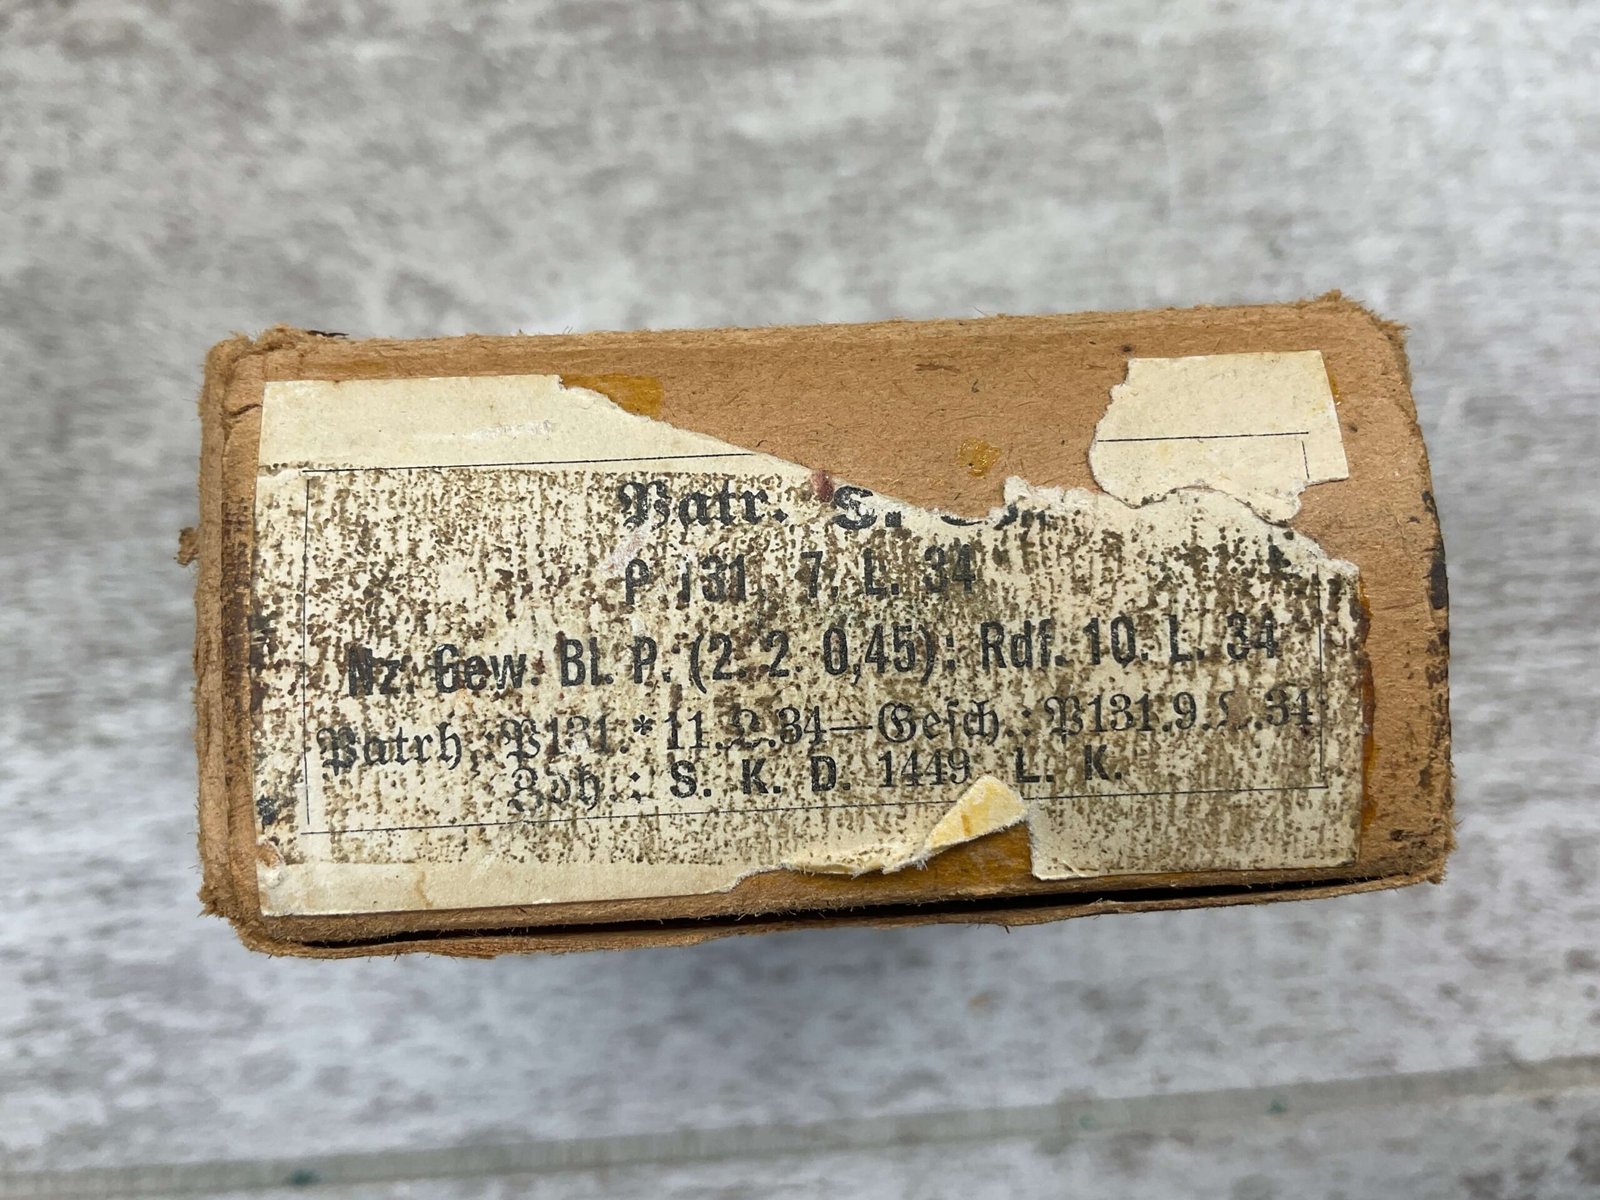 Patr. S.
P. 131. 7. L. 34
Nz. Gew. Bl. P. (2. 2. 0,45): Rdf. 10. L. 34
Patrh.: P131.* 11. L. 34—Gesch.: P131. 9. L. 34
Zdh.: S. K. D. 1449 L. K.